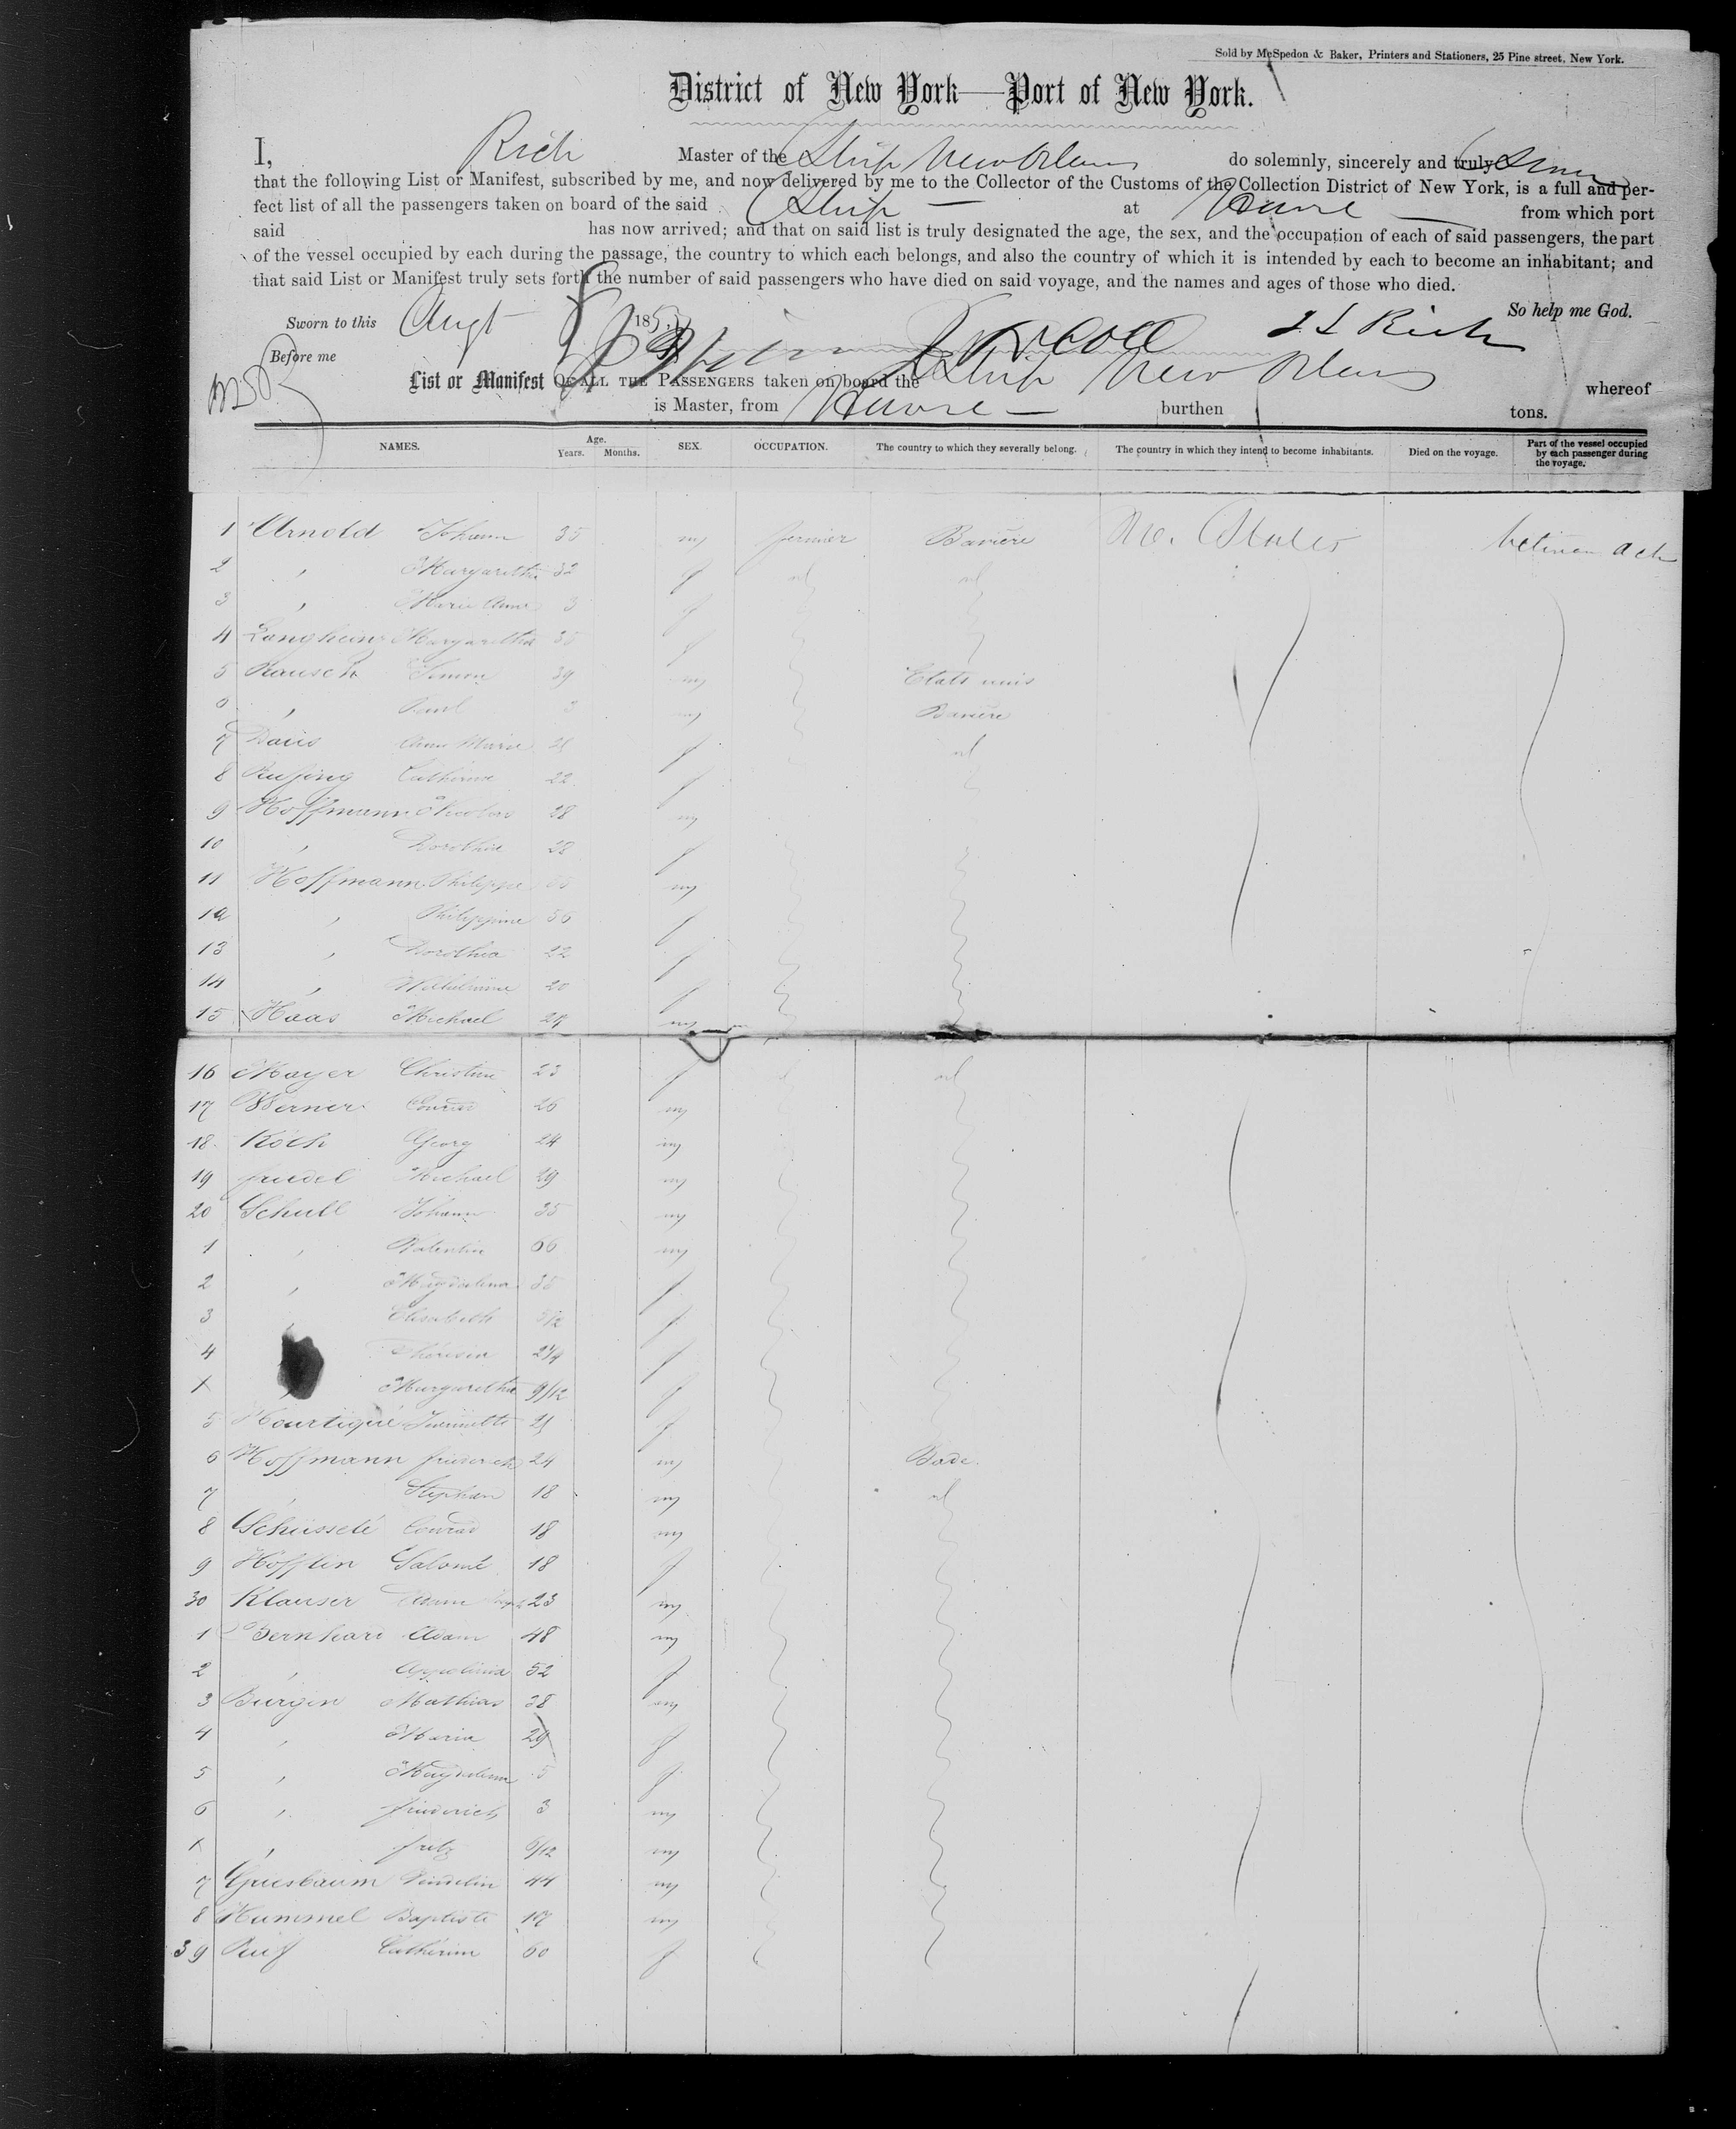 Sold by McSpedon & Baker, Printers and Stationers, 25 Pine street, New York.
District of New York—Port of New York.
I, Rich Master of the Ship New Orleans do solemnly, sincerely and truly
that the following List or Manifest, subscribed by me, and now delivered by me to the Collector of the Customs of the Collection District of New York, is a full and per-
fect list of all the passengers taken on board of the said Ship — at Havre — from which port
said has now arrived; and that on said list is truly designated the age, the sex, and the occupation of each of said passengers, the part
of the vessel occupied by each during the passage, the country to which each belongs, and also the country of which it is intended by each to become an inhabitant; and
that said List or Manifest truly sets forth the number of said passengers who have died on said voyage, and the names and ages of those who died.
So help me God.
Sworn to this Augt 185 Rich
Before me
List or Manifest OF ALL THE PASSENGERS taken on board the Ship New Orleans whereof
is Master, from Havre — burthen tons.
NAMES. Age. Years. Months. SEX. OCCUPATION. The country to which they severally belong. The country in which they intend to become inhabitants. Died on the voyage. Part of the vessel occupied by each passenger during the voyage.
1 Arnold Johann 35 m fermier Bavière States between deck
2 , Margaretha 32 f id id
3 , Marie Anna 3 f
4 Langhein Margaretha 35 f
5 Rausch Simon 39 m Etats unis
6 , Paul 3 m Bavière
7 Anna Marie 21 f id
8 Catherine 22 f
9 Hoffmann 28 m
10 , Dorothea 28 f
11 Hoffmann Philippe m
12 , Philippine 56 f
13 , Dorothea 22 f
14 , Wilhelmine 20 f
15 Haas Michael m
16 Mayer Christine 23 f id
17 Werner Conrad 26 m
18 Koch Georg 24 m
19 friedel Michael 29 m
20 Schull Johann 35 m
1 , Valentin 66 m
2 , Magdalena 35 f
3 Elisabeth f
4 Theresia f
X , Margaretha 9/12 f
5 21 f
6 Hoffmann friederich 24 m Bade.
7 , Stephan 18 m id
8 Conrad 18 m
9 Höfflin Salomé 18 f
30 Klauser Adam 23 m
1 Bernhard Adam 48 m
2 , Appolinia 52 f
3 Burgin Mathias 38 m
4 , Maria 29 f
5 , Magdalena 5 f
6 , friederich 3 m
X , fritz 6/12 m
7 44 m
8 Hummel Baptiste 17 m
39 Ruf Catherine 60 f